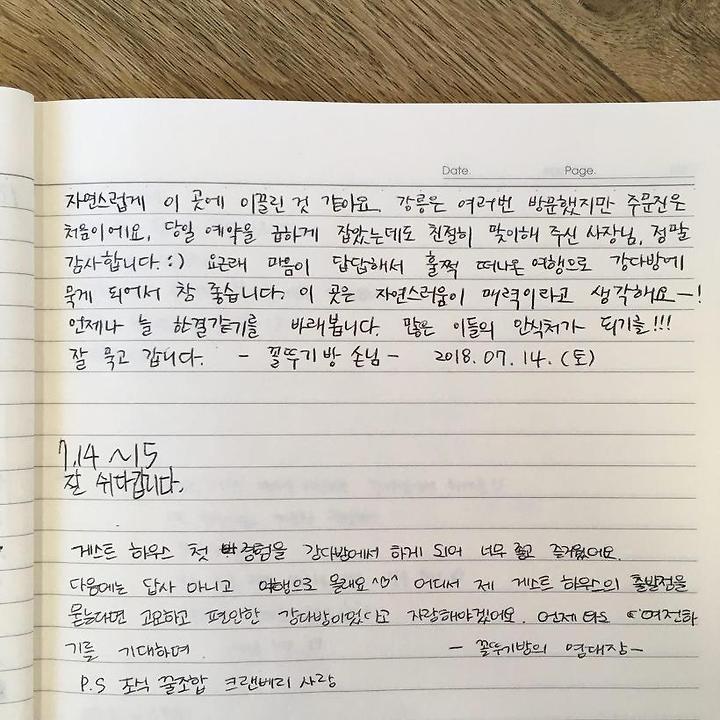 Date. Page.
자연스럽게 이 곳에 이끌린 것 같아요. 강릉은 여러번 방문했지만 주문진은
처음이에요. 당일 예약을 급하게 잡았는데도 친절히 맞이해 주신 사장님, 정말
감사합니다. :) 요근래 마음이 답답해서 훌쩍 떠나온 여행으로 강다방에
묵게 되어서 참 좋습니다. 이 곳은 자연스러움이 매력이라고 생각해요-!
언제나 늘 한결같기를 바래봅니다. 많은 이들의 안식처가 되기를!!!
잘 묵고 갑니다. - 꼴뚜기방 손님 - 2018. 07. 14. (토)
7.14 ~15
잘 쉬다갑니다.
게스트 하우스 첫 경험을 강다방에서 하게 되어 너무 좋고 즐거웠어요.
다음에는 답사 아니고 여행으로 올래요 ^0^ 어디서 제 게스트 하우스의 출발점을
묻는다면 고요하고 편안한 강다방이었다고 자랑해야겠어요. 언제 와도 여전하
기를 기대하며 - 꼴뚜기방의 염대장 -
P.S 조식 꿀조합 크랜베리 사랑